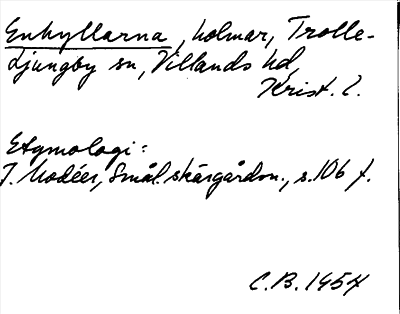 Enhyllarna, holmar, Trolle-
Ljungby sn, Villands hd,
Krist. l.
Etymologi:
J. Modéer, Smål. skärgårdsn., s. 106 f.
C.B. 1954